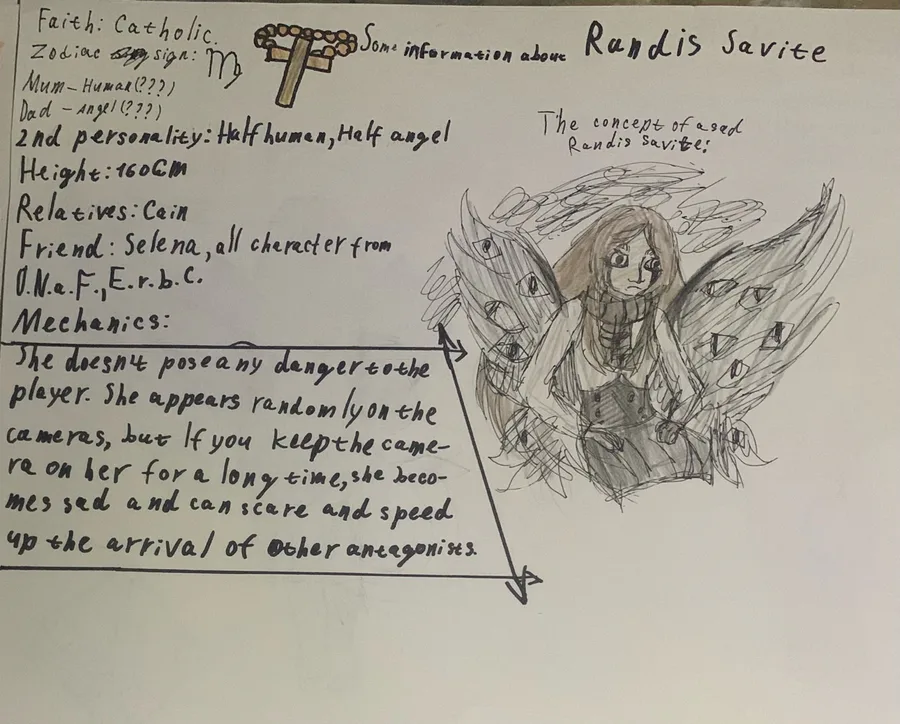 Faith: Catholic.
Zodiac sign: ♏
Mum-Human(???)
Dad -Angel(???)
2nd personality: Half human, Half angel
Height: 160CM
Relatives: Cain
Friend: Selena, all character from
O.N.a.F., E.r.b.C.
Mechanics:
She doesn't pose any danger to the
player. She appears randomly on the
cameras, but If you keep the came-
ra on her for a long time, she beco-
mes sad and can scare and speed
up the arrival of other antagonists.
Some information about Randis Savite
The concept of a sad
Randis Savite: